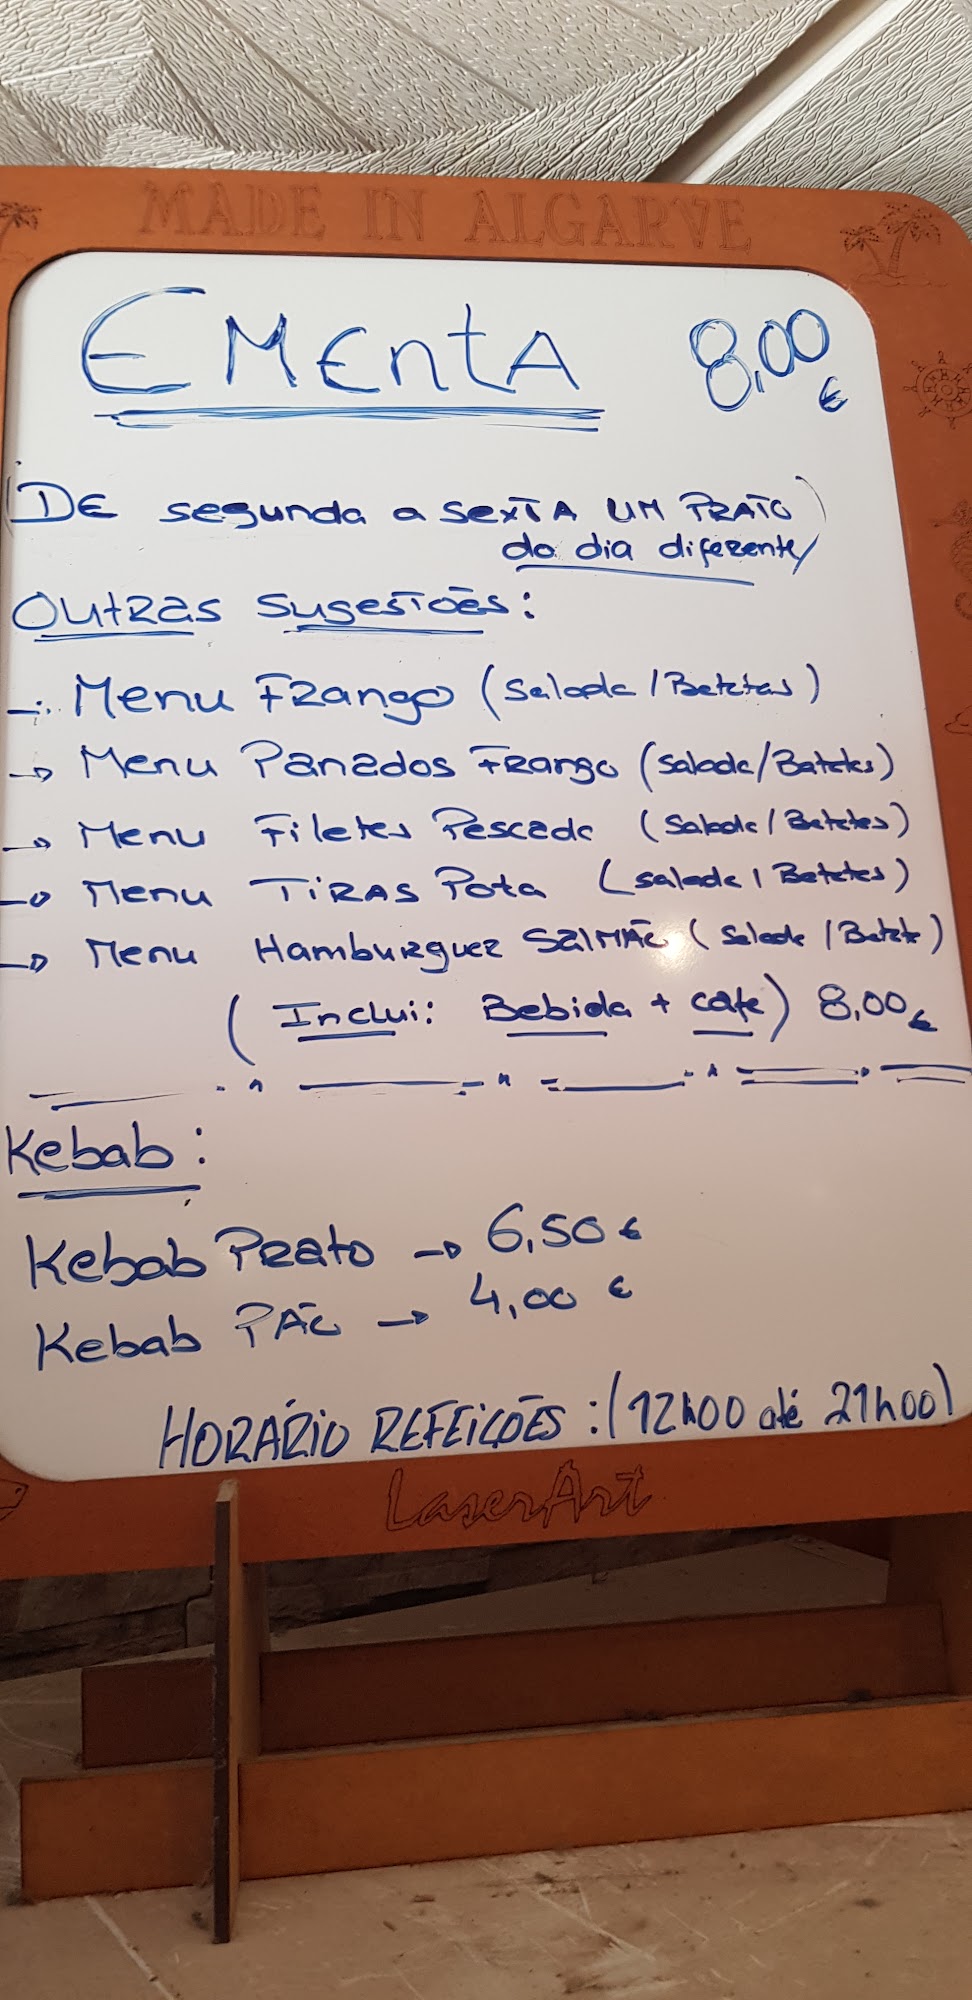 MADE IN ALGARVE
EMENTA 8,00 €
(DE segunda a sexTA UM PRATO
do dia diferente)
OUTRAS SUGESTÕES:
-: Menu FRango (Salada / Batatas)
→ Menu Panados FRango (Salada/Batatas)
→ Menu Filetes Pescada (Salada/Batatas)
→ Menu TIRAS Pota (Salada / Batatas)
→ Menu HambuRgueR SalMÃo (Salada / Batata)
(Inclui: Bebida + café) 8,00 €
Kebab:
Kebab PRato → 6,50 €
Kebab PÃo → 4,00 €
HORÁRIO REFEIÇÕES: (12h00 até 21h00)
LaserArt